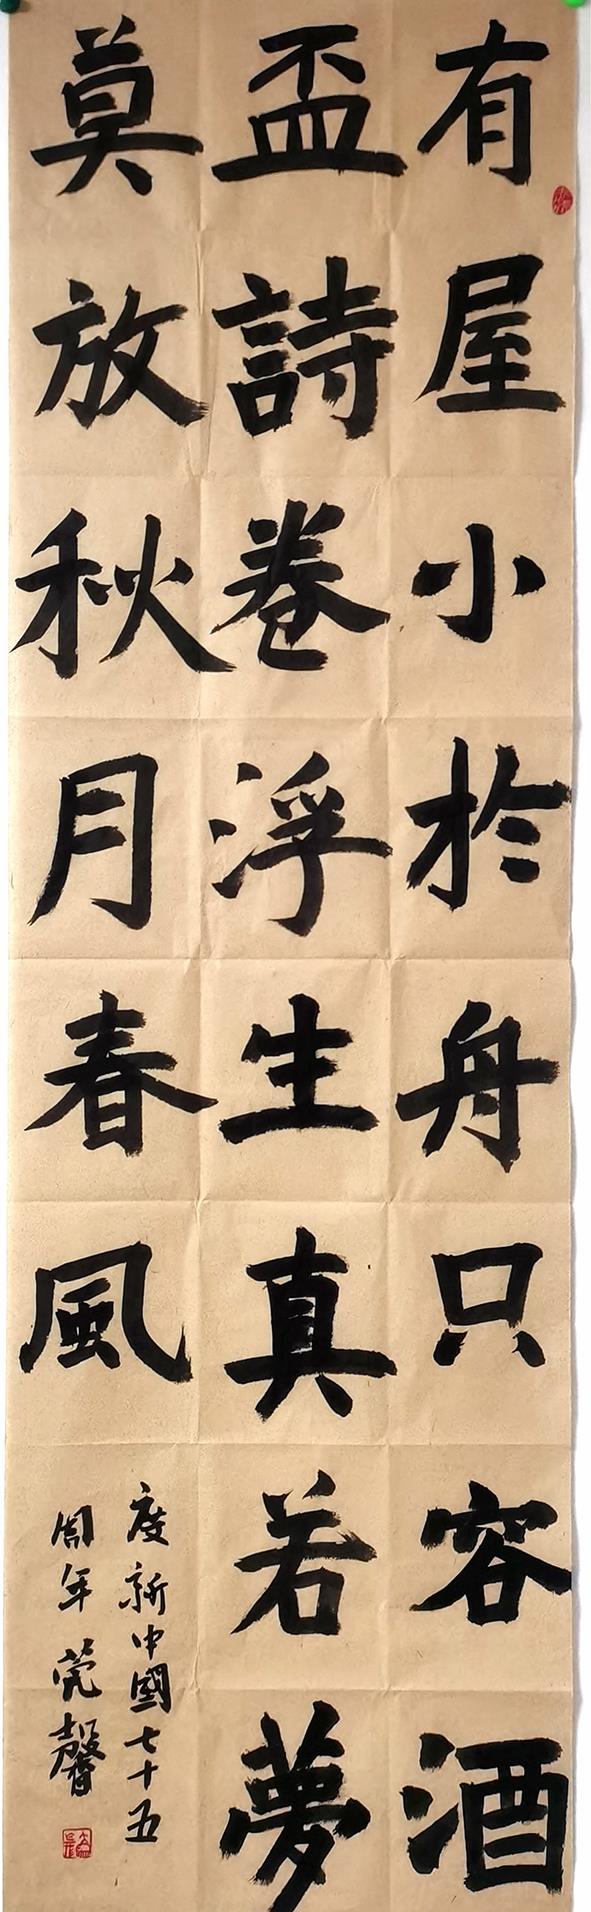 有屋小於舟只容酒
盃詩卷浮生真若夢
莫放秋月春風
度新中國七十五
周年莞馨